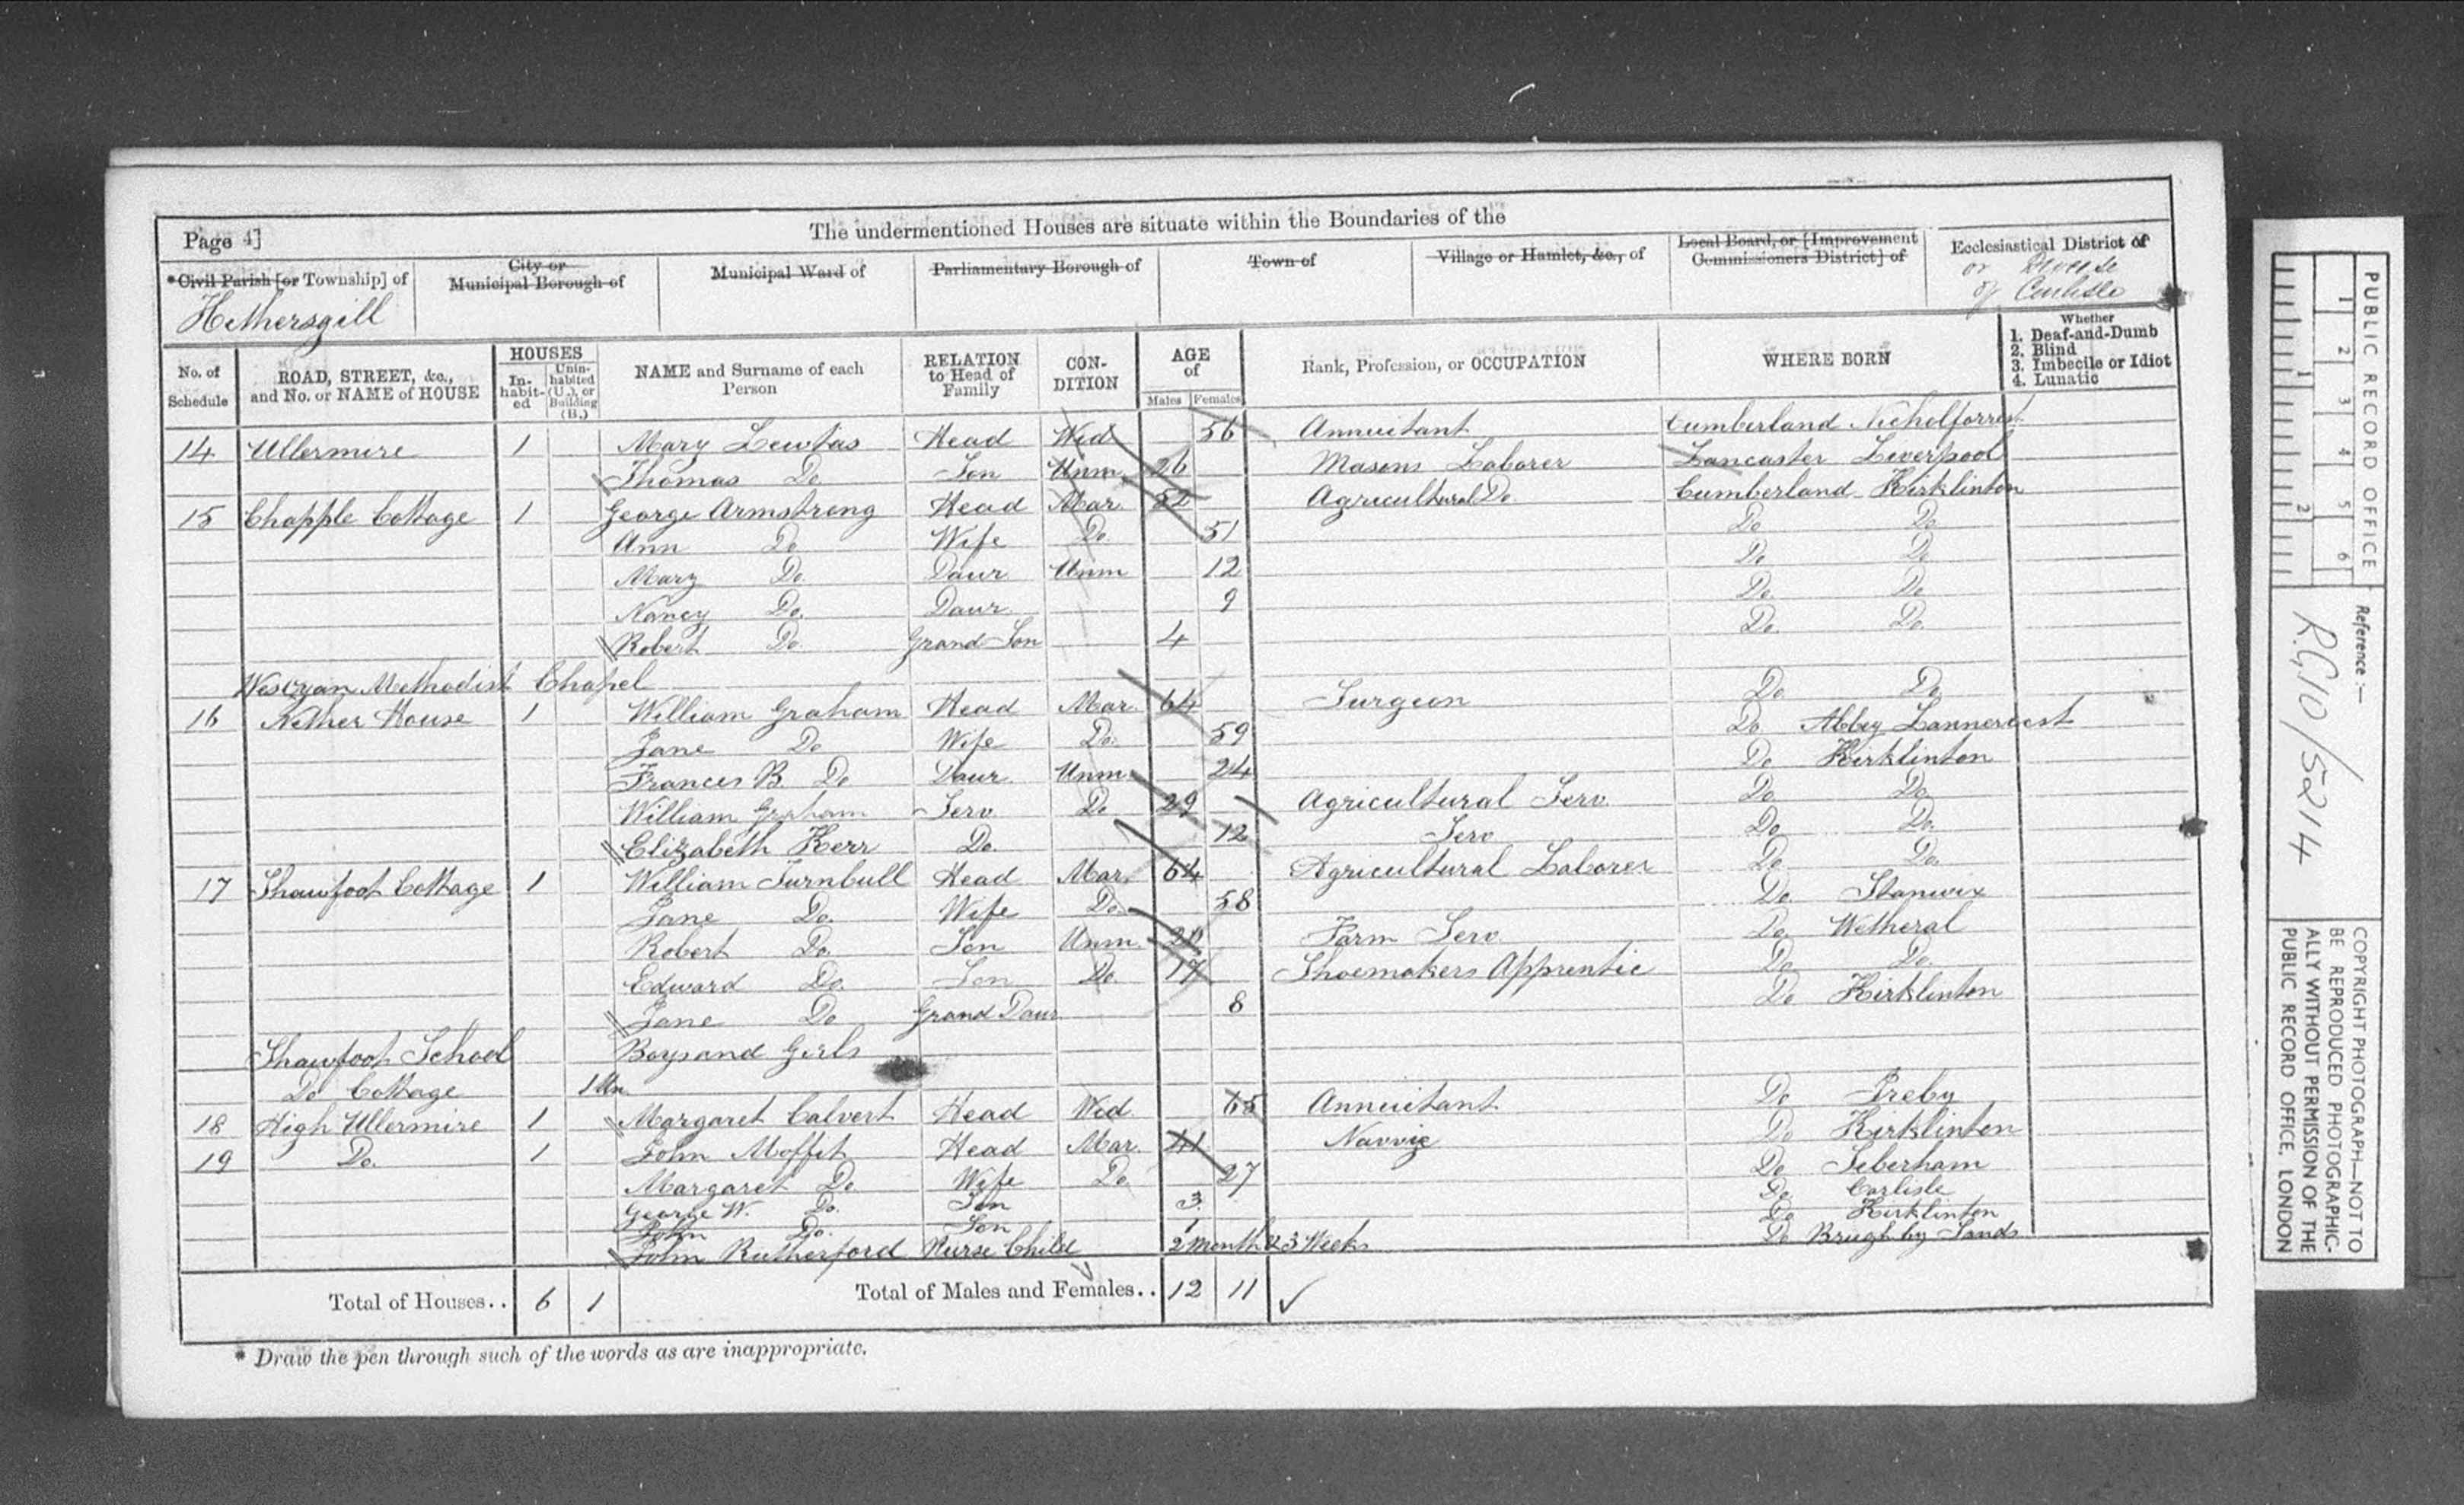 The undermentioned Houses are situate within the Boundaries of the
Page 4]
*Civil Parish [or Township] of
City or Municipal Borough of
Municipal Ward of
Parliamentary Borough of
Town of
Village or Hamlet, &c., of
Local Board, or [Improvement Commissioners District] of
Ecclesiastical District of
or
of Carlisle
Hethersgill
No. of Schedule
ROAD, STREET, &c., and No. or NAME of HOUSE
HOUSES
In-habit-ed
Unin-habited (U.), or Building (B.)
NAME and Surname of each Person
RELATION to Head of Family
CON-DITION
AGE of
Males Females
Rank, Profession, or OCCUPATION
WHERE BORN
Whether
1. Deaf-and-Dumb
2. Blind
3. Imbecile or Idiot
4. Lunatic
14 Ullermire 1 Mary Lewtas Head Wid 56 Annuitant Cumberland Nicholforrest
Thomas Do Son Unm 26 Masons Laborer Lancaster Liverpool
15 Chapple Cottage 1 George Armstrong Head Mar. 52 Agricultural Do. Cumberland Kirklinton
Ann Do Wife Do. 51 Do Do
Mary Do. Daur. Unm 12 Do Do
Nancy Do. Daur. 9 Do Do
Robert Do. Grand Son 4 Do. Do
Wesyan Methodist Chapel
16 Nether House 1 William Graham Head Mar. 64 Surgeon Do Do
Jane Do Wife Do. 59 Do Abbey Lannercost
Frances B. Do Daur. Unm 24 Do Kirklinton
William Graham Serv. Do 29 Agricultural Serv. Do Do
Elizabeth Kerr Do. 12 Serv Do Do.
17 Shawfoot Cottage 1 William Turnbull Head Mar. 64 Agricultural Laborer Do Do.
Jane Do. Wife Do. 58 Do. Stanwix
Robert Do. Son Unm. Farm Serv. Do. Wetheral
Edward Do. Son Do. 17 Shoemakers Apprentic Do Do.
Jane Do Grand Daur 8 Do Kirklinton
Shawfoot School Boys and Girls
Do Cottage 1 Un
18 High Ullermire 1 Margaret Calvert Head Wid. 65 Annuitant Do Ireby
19 Do. 1 John Moffet Head Mar. 41 Navvie Do Kirklinton
Margaret Do. Wife Do. 27 Do Seberham
George W. Do. Son 3 Do. Carlisle
John Do. Son 1 Do Kirklinton
John Rutherford Nurse Child 2 Month & 3 Weeks Do Brugh by Sands
Total of Houses.. 6 1 Total of Males and Females.. 12 11
* Draw the pen through such of the words as are inappropriate.
PUBLIC RECORD OFFICE
1 2 3 4 5 6
1 2
Reference :—
R.G.10/5214
COPYRIGHT PHOTOGRAPH—NOT TO
BE REPRODUCED PHOTOGRAPHIC-
ALLY WITHOUT PERMISSION OF THE
PUBLIC RECORD OFFICE, LONDON